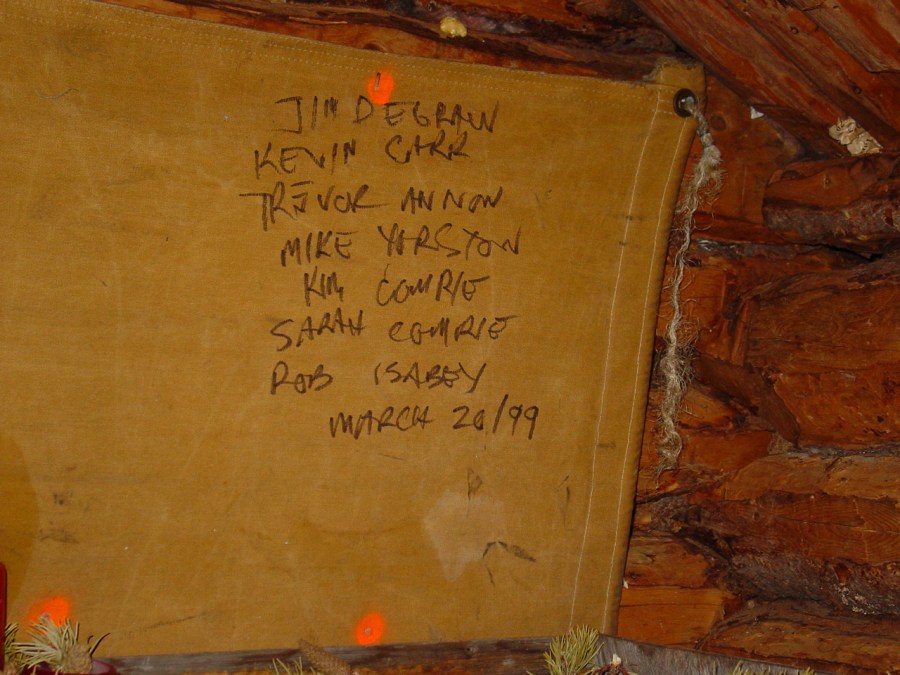 JIM DEGRAW
KEVIN CARR
TREVOR ANNON
MIKE YARSTON
KIM COMRIE
SARAH COMRIE
ROB ISABEY
MARCH 20/99